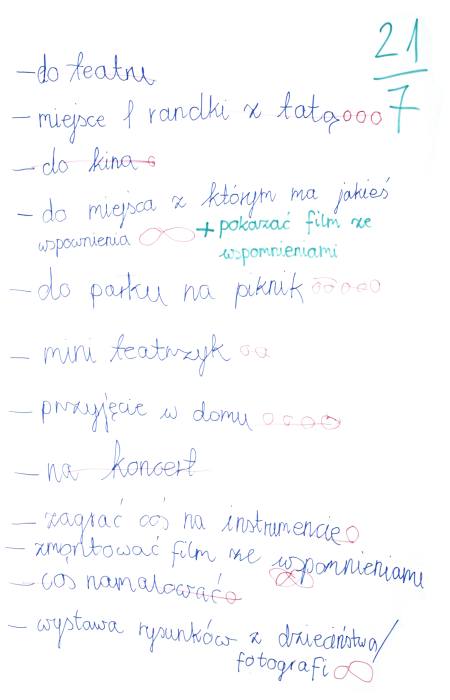 21
7
- do teatru
- miejsce 1 randki z tatą
- do kina
- do miejsca z którym ma jakieś
wspomnienia + pokazać film ze
wspomnieniami
- do parku na piknik
- mini teatrzyk
- przyjęcie w domu
- na koncert
- zagrać coś na instrumencie
- zmontować film ze wspomnieniami
- coś namalować
- wystawa rysunków z dzieciństwa/
fotografi